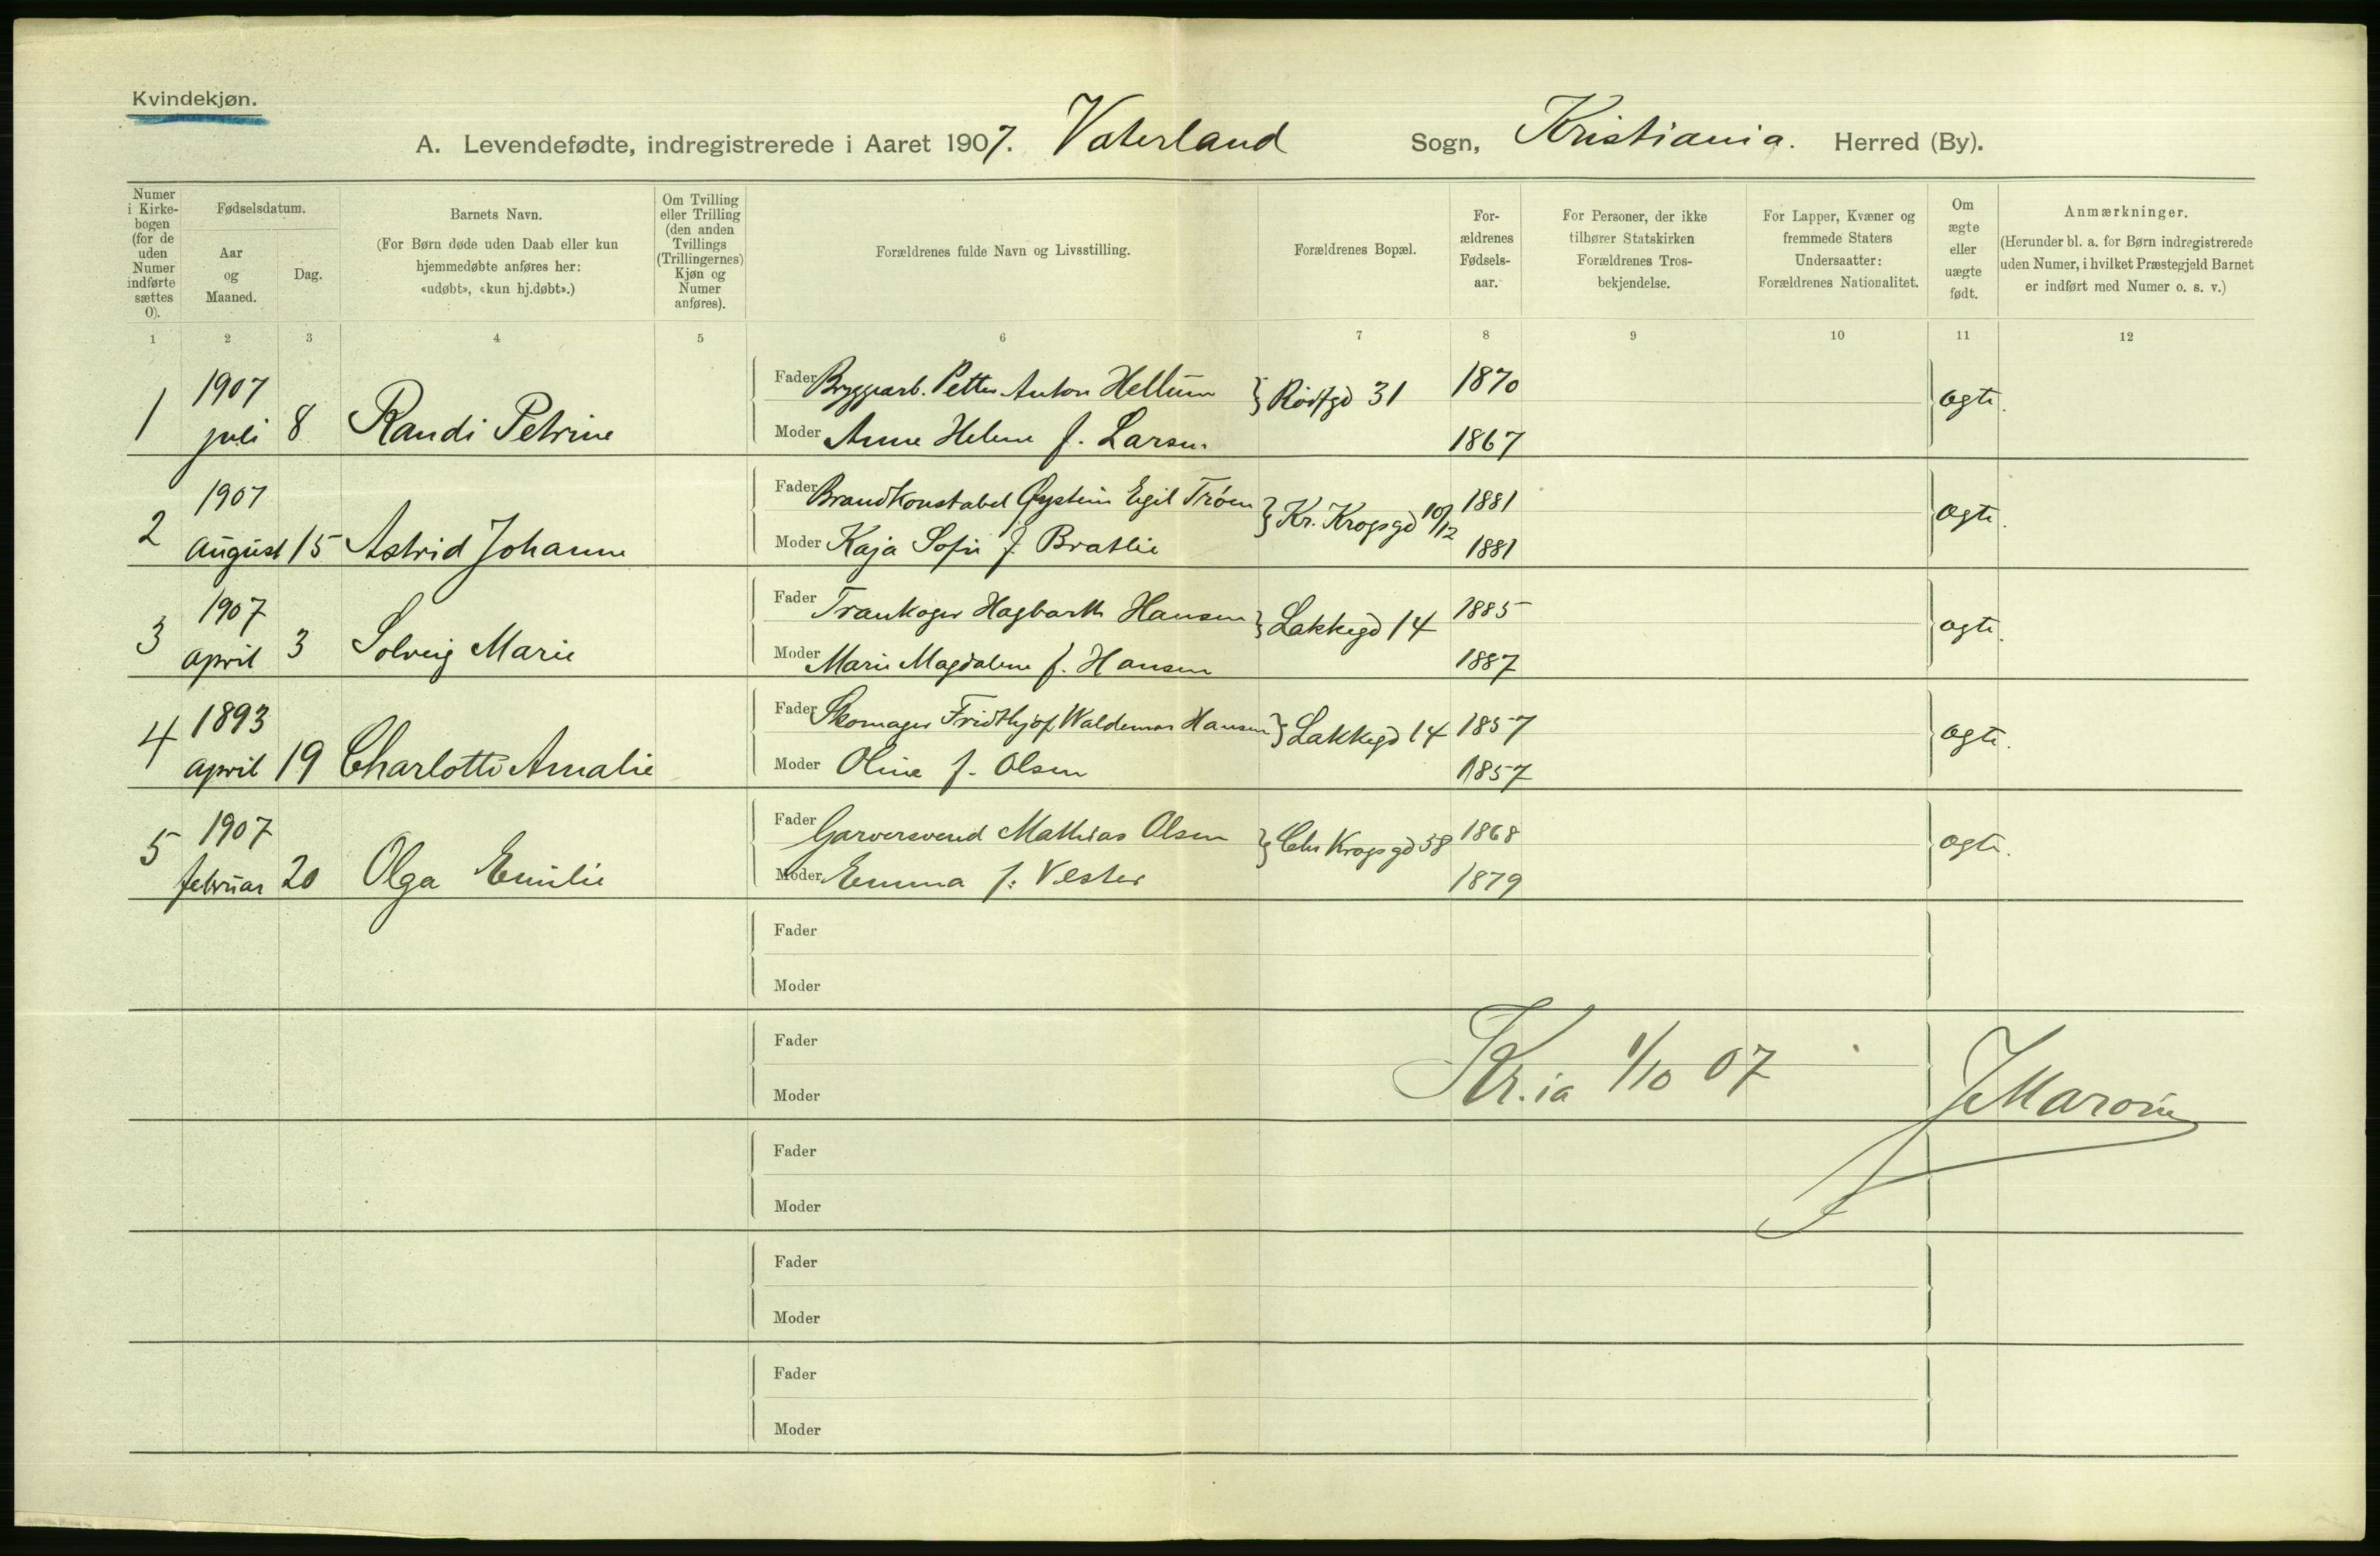 Kvindekjøn.
A. Levendefødte, indregistrerede i Aaret 1907. Vaterland Sogn, Kristiania. Herred (By).
Numer i Kirkebogen (for de uden Numer indførte sættes 0).
Fødselsdatum.
Aar og Maaned.
Dag.
Barnets Navn.
(For Børn døde uden Daab eller kun hjemmedøbte anføres her: «udøbt», «kun hj.døbt».)
Om Tvilling eller Trilling (den anden Tvillings (Trillingernes) Kjøn og Numer anføres).
Forældrenes fulde Navn og Livsstilling.
Forældrenes Bopæl.
Forældrenes Fødselsaar.
For Personer, der ikke tilhører Statskirken Forældrenes Trosbekjendelse.
For Lapper, Kvæner og fremmede Staters Undersaatter: Forældrenes Nationalitet.
Om ægte eller uægte født.
Anmærkninger.
(Herunder bl. a. for Børn indregistrerede uden Numer, i hvilket Præstegjeld Barnet er indført med Numer o. s. v.)
1 2 3 4 5 6 7 8 9 10 11 12
1 1907 juli 8 Randi Petrine
Fader Bryggearb. Petter Anton Hellum } 1870
Moder Anne Helene f. Larsen 1867
31 ægte.
2 1907 august 15 Astrid Johanne
Fader Brandkonstabel Øystein Egil Trøen } Kr. Krogsgd 10/12 1881
Moder Kaja Sofie f. Bratlie 1881
ægte.
3 1907 april 3 Solveig Marie
Fader Trankoger Hagbarth Hansen } Lakkegd 14 1885
Moder Marie Magdalene f. Hansen 1887
ægte.
4 1893 april 19 Charlotte Amalie
Fader Skomager Fridthjof Waldemar Hansen } Lakkegd 14 1857
Moder Oline f. Olsen 1857
ægte.
5 1907 februar 20 Olga Emilie
Fader Garversvend Mathias Olsen } Chr Krogsgd 58 1868
Moder Emma f. Vester 1879
ægte.
Fader
Moder
Fader
Moder
Kr.ia 1/10 07
Fader
Moder
Fader
Moder
Fader
Moder